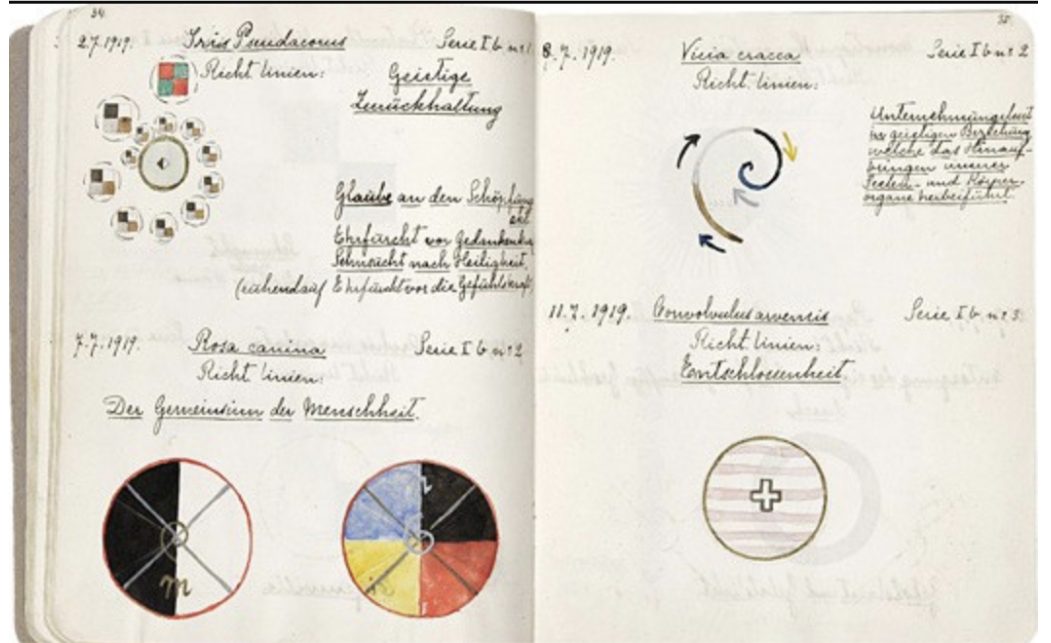 34
2.7.1919. Iris Pseudacorus Serie I b nr 1
Richt linien:
Geistige
Zurückhaltung
Glaube an den Schöpfung
Ehrfurcht vor Gedanken
Sehnsucht nach Heiligkeit.
(ruhend auf Ehrfurcht vor die Gefühlskraft)
7.7.1919. Rosa canina Serie I b nr 2
Richt linien:
Der Gemeinsinn der Menschheit.
m
35
8.7.1919. Vicia cracca Serie I b nr 2
Richt. linien:
Unternehmungslust
in geistigen Beziehung
welche das Hinauf-
bringen unserer
Seelen- und Körper-
organe herbeiführt.
11.7.1919. Convolvulus arvensis Serie I b nr 3
Richt linien:
Entschlossenheit